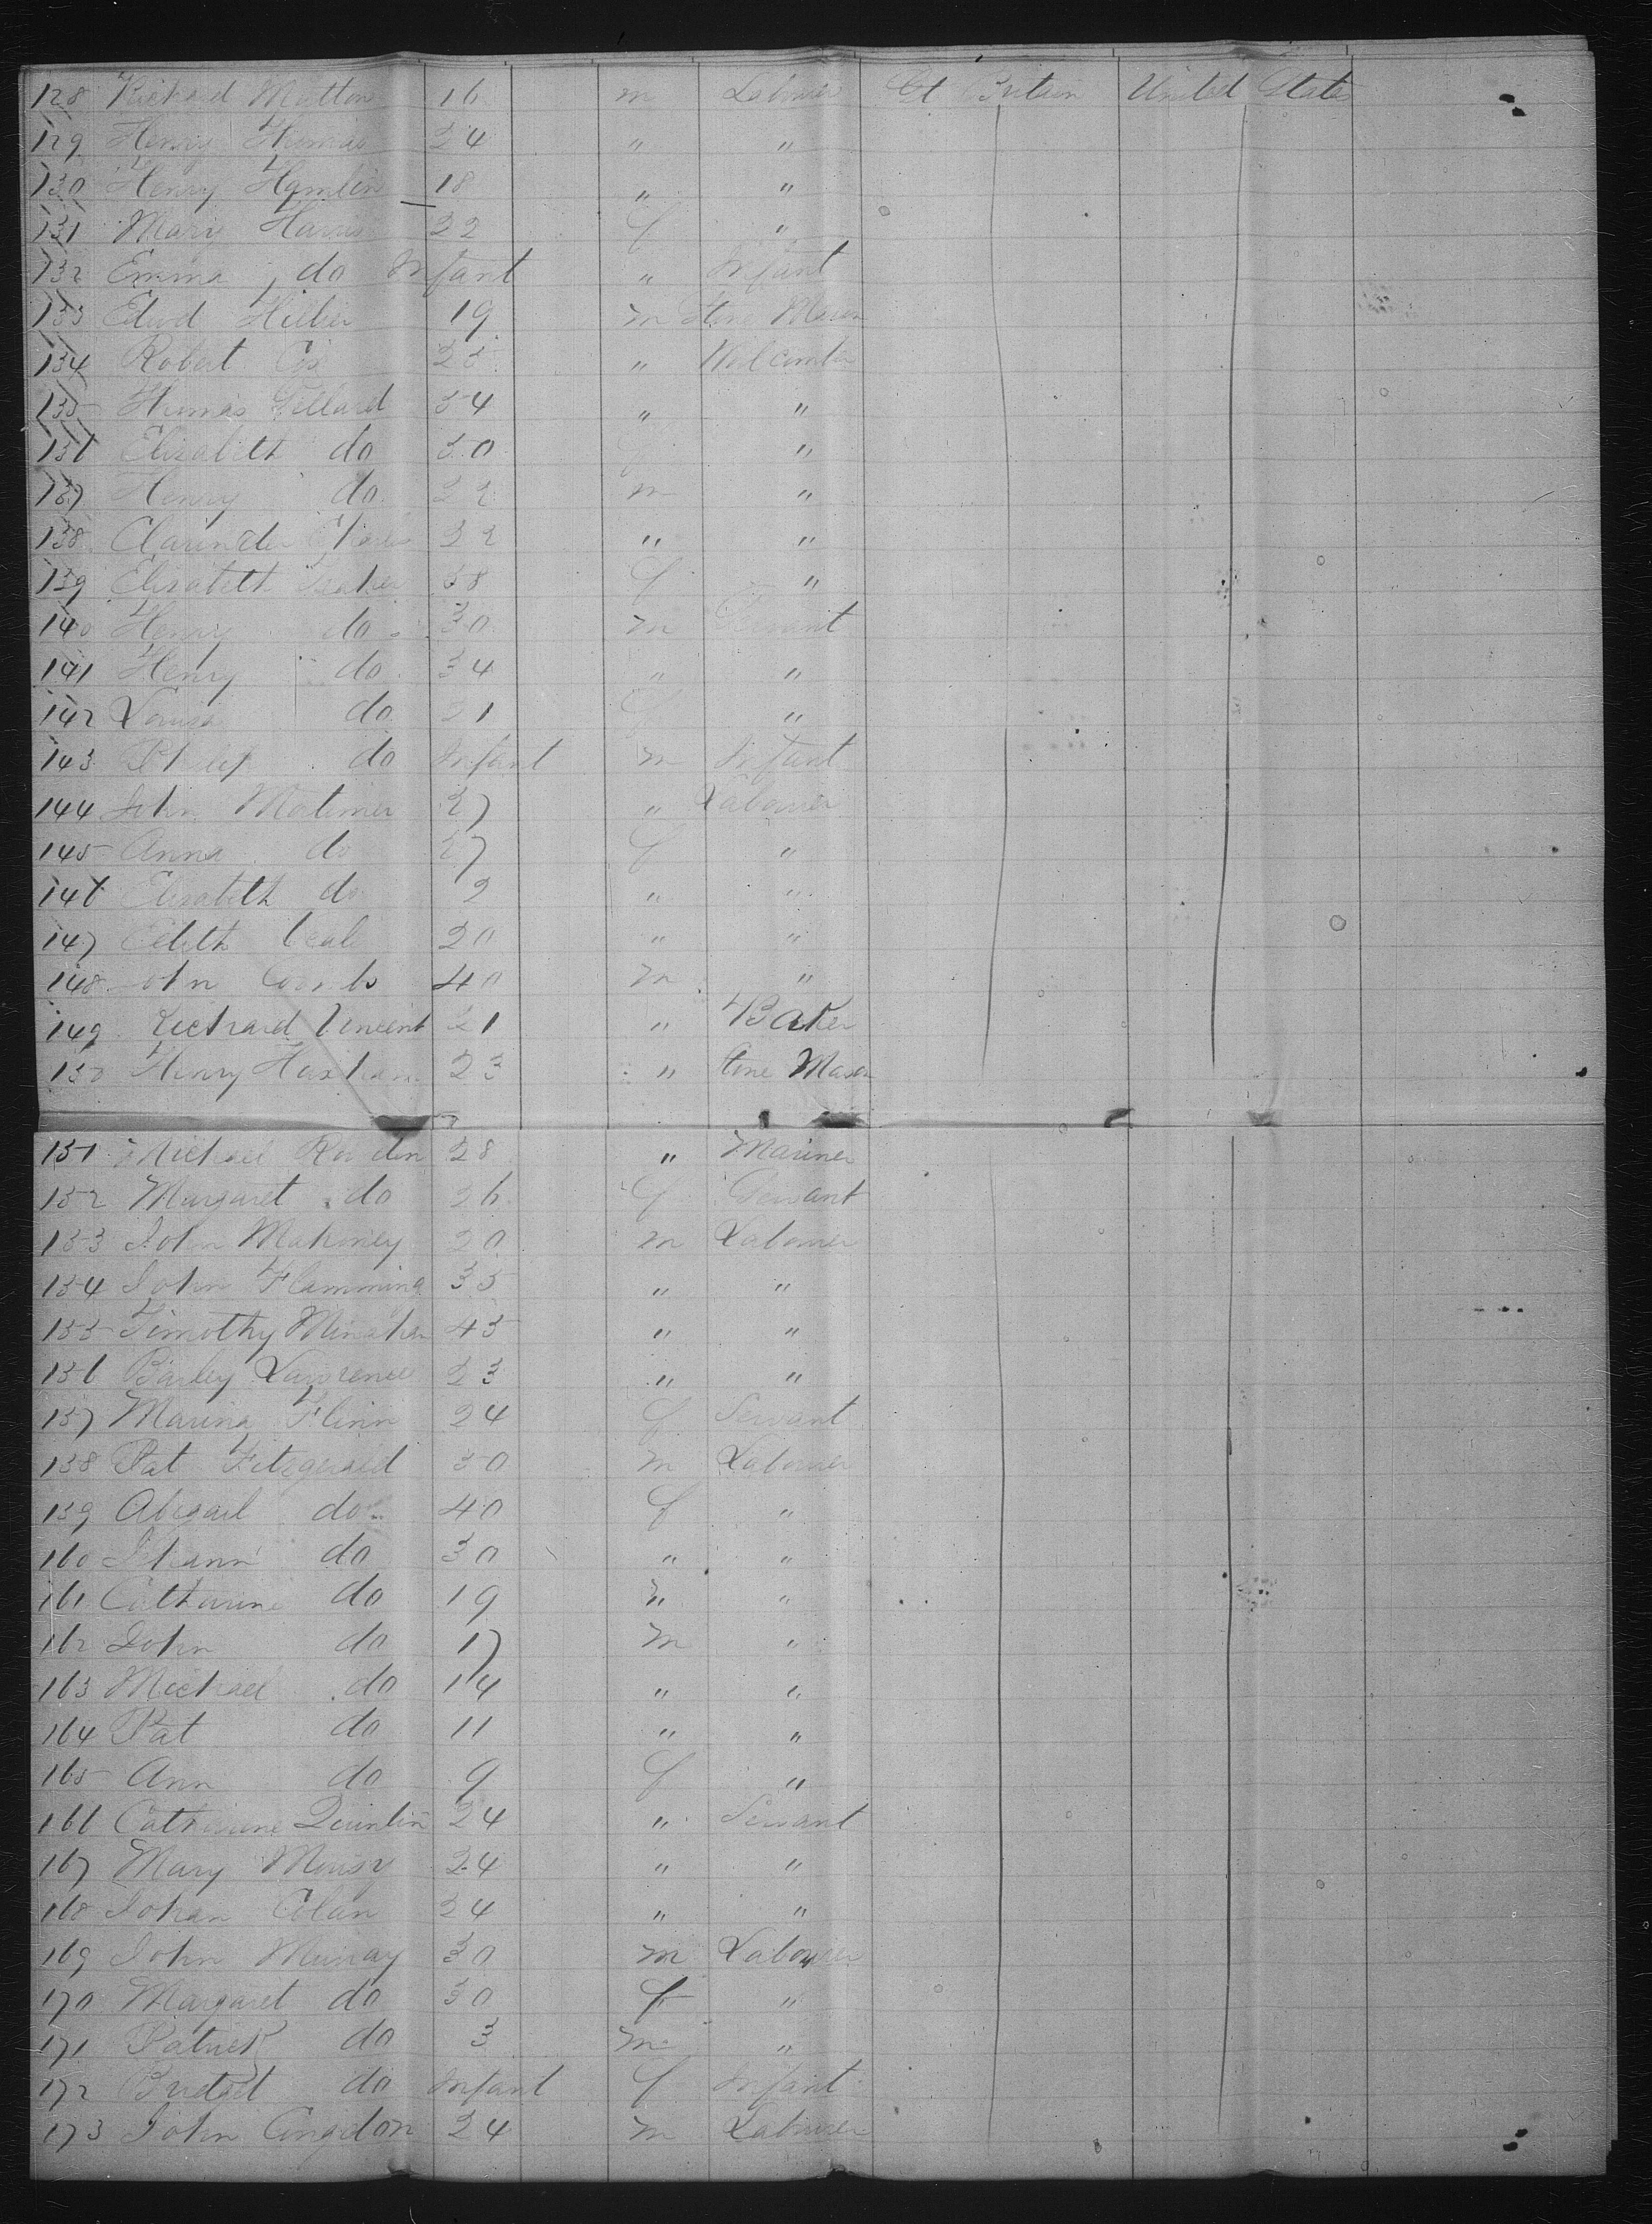 128 Richard Mutton 16 m Labourer Gt Britain United States
129 Henry Thomas 24 " "
130 Henry Hamlin 18 " "
131 Mary Harris 22 f "
132 Emma do Infant " Infant
133 Edwd Hillier 19 m Mason
134 Robert " Wolcomber
135 Thomas Gillard 34 " "
136 Elizabeth do 30 "
137 Henry do 22 m "
138 22 " "
139 Elizabeth 38 f "
140 Henry do 30 m
141 Henry do 34 " "
142 Louisa do 21 f "
143 Philip do Infant m Infant
144 John Mortimer 27 " Labourer
145 Anna do 27 f "
146 Elizabeth do 2 " "
147 Edith 20 " "
148 John Coombs 40 m "
149 Richard Vincent 21 " Baker
150 Henry 23 " tone Mason
151 Michael 28 " Mariner
152 Margaret do 26 f Servant
153 John Mahoney 20 m Labourer
154 John Flamming 35 " "
155 Timothy Minahan 45 " "
156 Barley Lawrence 23 " "
157 Marina Flinn 24 f Servant
158 Pat Fitzgerald 30 m Labourer
159 Abigail do 40 f "
160 Johann do 30 " "
161 Catharine do 19 " "
162 John do 17 m "
163 Michael do 14 " "
164 Pat do 11 " "
165 Ann do 9 f "
166 Catharine Quinlin 24 " Servant
167 Mary 24 " "
168 Johan Colan 24 " "
169 John Murray 30 m Labourer
170 Margaret do 30 f "
171 Patrick do 3 m "
172 Bridget do Infant f Infant
173 John Congdon 24 m Labourer